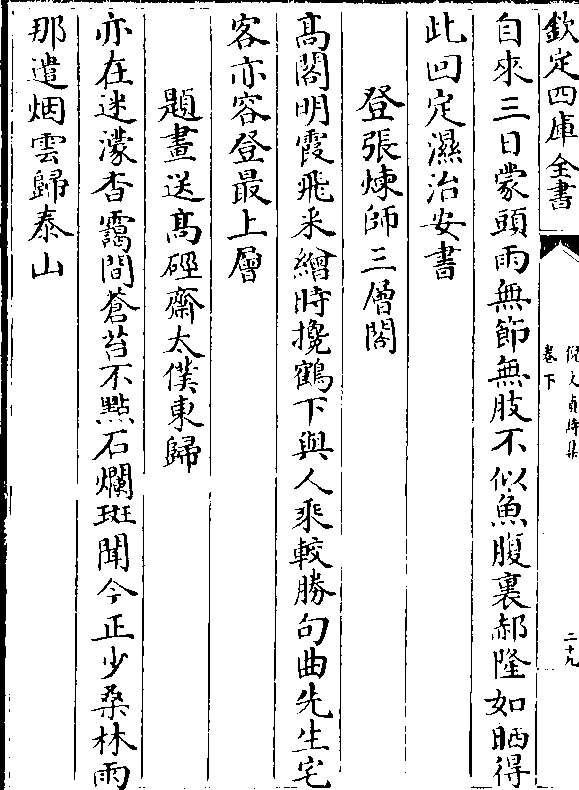 欽定四庫全書
倪文貞詩集
卷下
二十九
自來三日蒙頭雨無節無肢不似魚腹裏郝隆如晒得
此回定濕治安書
登張煉師三層閣
髙閣明霞飛采繪時攙鶴下與人乘較勝句曲先生宅
客亦容登最上層
題畫送髙硜齋太僕東歸
亦在迷濛杳靄間蒼苔不點石斕斑聞今正少桑林雨
那遣烟雲歸泰山